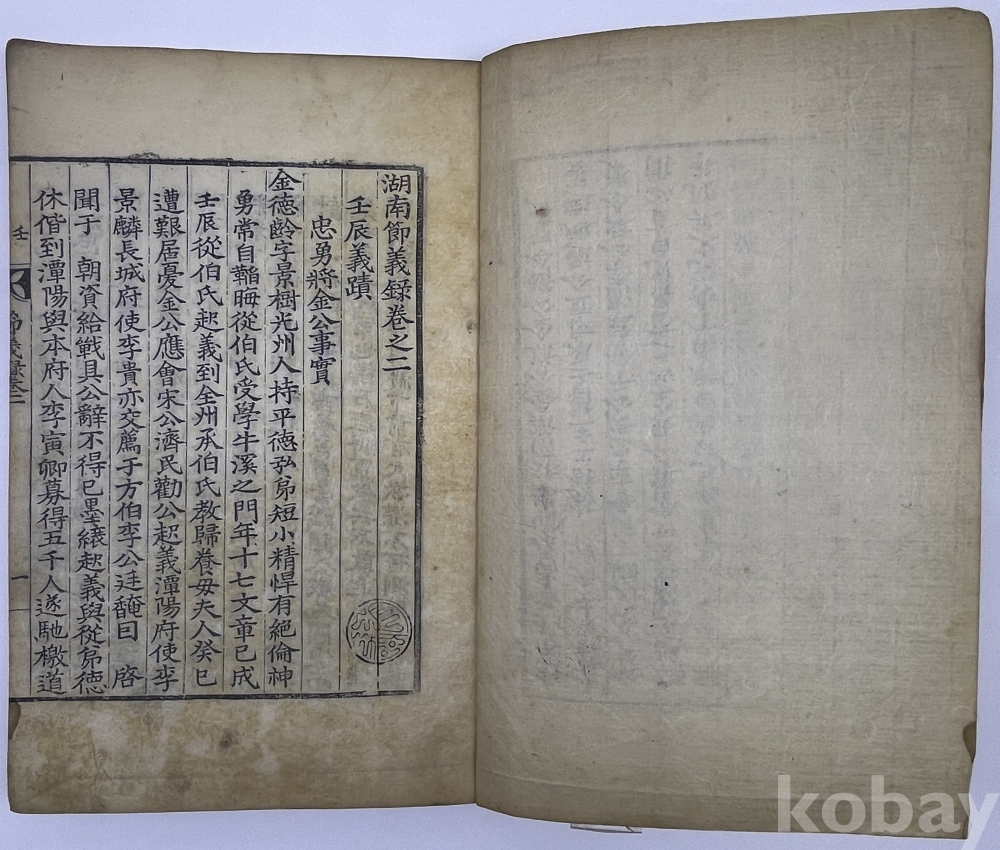 湖南節義録卷之二
壬辰義蹟
忠勇將金公事實
金德齡字景樹光州人持平德弘弟短小精悍有絶倫神
勇常自韜晦從伯氏受學牛溪之門年十七文章已成
壬辰從伯氏起義到全州承伯氏教歸養母夫人癸巳
遭艱居憂金公應會宋公濟民勸公起義潭陽府使李
景麟長城府使李貴亦交薦于方伯李公廷馣曰 啓
聞于 朝資給戰具公辭不得已墨縗起義與從弟德
休偕到潭陽與本府人李寅卿募得五千人遂馳檄道
壬
節義録卷二
一
kobay